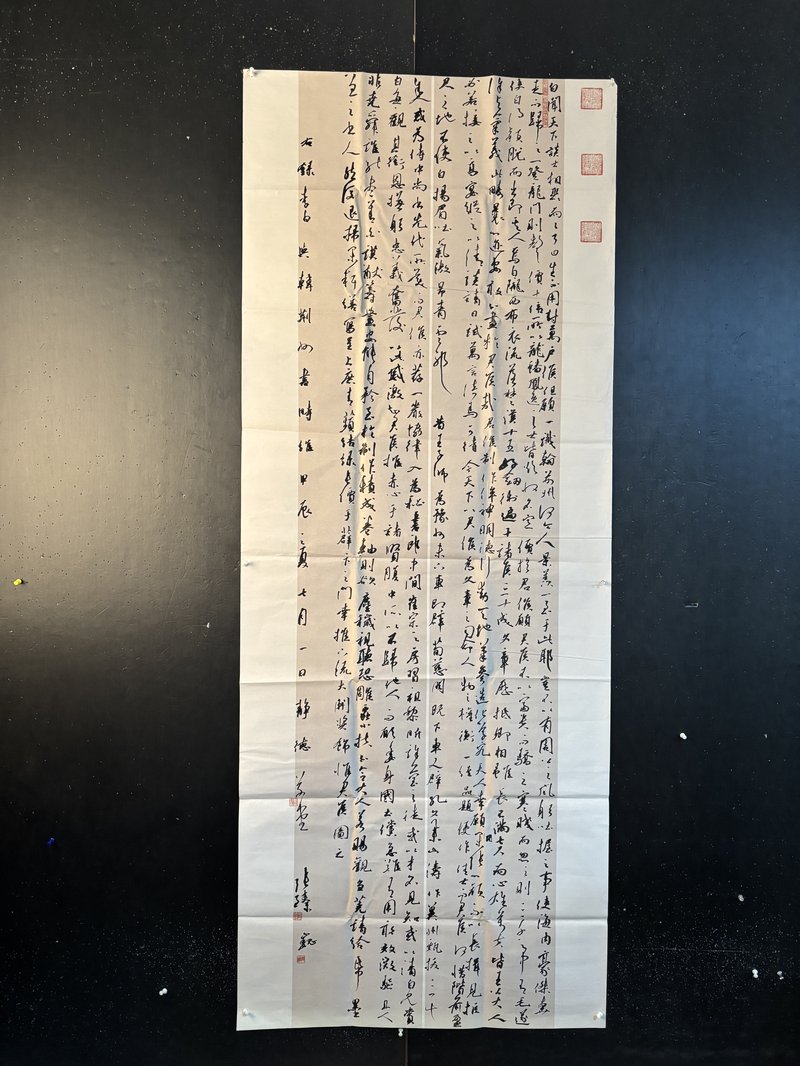 白聞天下談士相聚而言曰生不用封萬戶侯但願一識韓荊州何令人景慕一至于此耶豈不以有周公之風躬吐握之事使海内豪傑奔
走而歸之一登龍門則聲價十倍所以龍蟠鳳逸之士皆欲收名定價於君侯願君侯不以富貴而驕之寒賤而忽之則三千之中有毛遂
使白得穎脫而出即其人焉白隴西布衣流落楚漢十五好劍術遍干諸侯三十成文章歷抵卿相雖長不滿七尺而心雄萬夫皆王公大人
許與氣義此疇曩心迹安敢不盡於君侯哉君侯制作侔神明德行動天地筆參造化學究天人幸願開張心顏不以長揖見拒
必若接之以高宴縱之以清談請日試萬言倚馬可待今天下以君侯為文章之司命人物之權衡一經品題便作佳士而君侯何惜階前盈
尺之地不使白揚眉吐氣激昂青雲耶 昔王子師為豫州未下車即辟荀慈明既下車又辟孔文舉山濤作冀州甄拔三十
餘人或為侍中尚書先代所美而君侯亦薦一嚴協律入為秘書郎中間崔宗之房習祖黎昕許瑩之徒或以才名見知或以清白見賞
白每觀其銜恩撫躬忠義奮發以此感激知君侯推赤心于諸賢腹中所以不歸他人而願委身國士儻急難有用敢效微軀且人
非堯舜誰能盡善白謨猷籌畫安能自矜至於制作積成卷軸則欲塵穢視聽恐雕蟲小技不合大人若賜觀芻蕘請給紙墨
兼之書人然後退掃閒軒繕寫呈上庶青萍結綠長價于薛卞之門幸推下流大開獎飾惟君侯圖之
右錄李白與韓荊州書時維甲辰之夏七月一日靜德